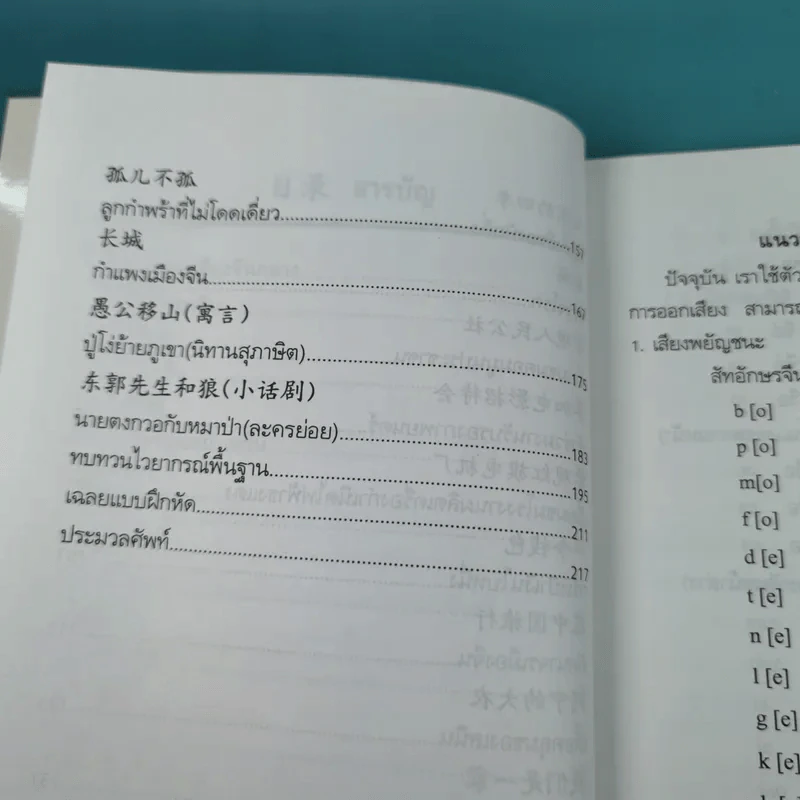 孤儿不孤
ลูกกำพร้าที่ไม่โดดเดี่ยว..........157
长城
กำแพงเมืองจีน..........167
愚公移山(寓言)
ปู่โง่ย้ายภูเขา(นิทานสุภาษิต)..........175
东郭先生和狼(小话剧)
นายตงกวอกับหมาป่า(ละครย่อย)..........183
ทบทวนไวยากรณ์พื้นฐาน..........195
เฉลยแบบฝึกหัด..........211
ประมวลศัพท์..........217
แนว
ปัจจุบัน เราใช้ตัว
การออกเสียง สามารถ
1. เสียงพยัญชนะ
สัทอักษรจีน
b [o]
p [o]
m[o]
f [o]
d [e]
t [e]
n [e]
l [e]
g [e]
k [e]